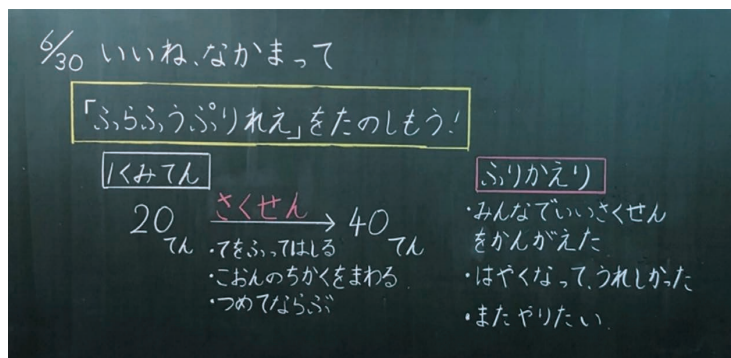 6/30 いいね、なかまって
「ふらふうぷりれえ」をたのしもう!
1くみてん
20てん さくせん 40てん
・てをふってはしる
・こおんのちかくをまわる
・つめてならぶ
ふりかえり
・みんなでいいさくせん
をかんがえた
・はやくなって、うれしかった
・またやりたい